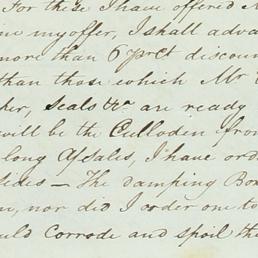 For these I have offered M
ne my offer, I shall adva
more than 6 prCt discoun
than those which Mr
her, Seals &ca are ready
will be the Culloden from
long Assales, I have ord
sides — The damping Box
n, nor did I order one to
uld Corrode and spoil the